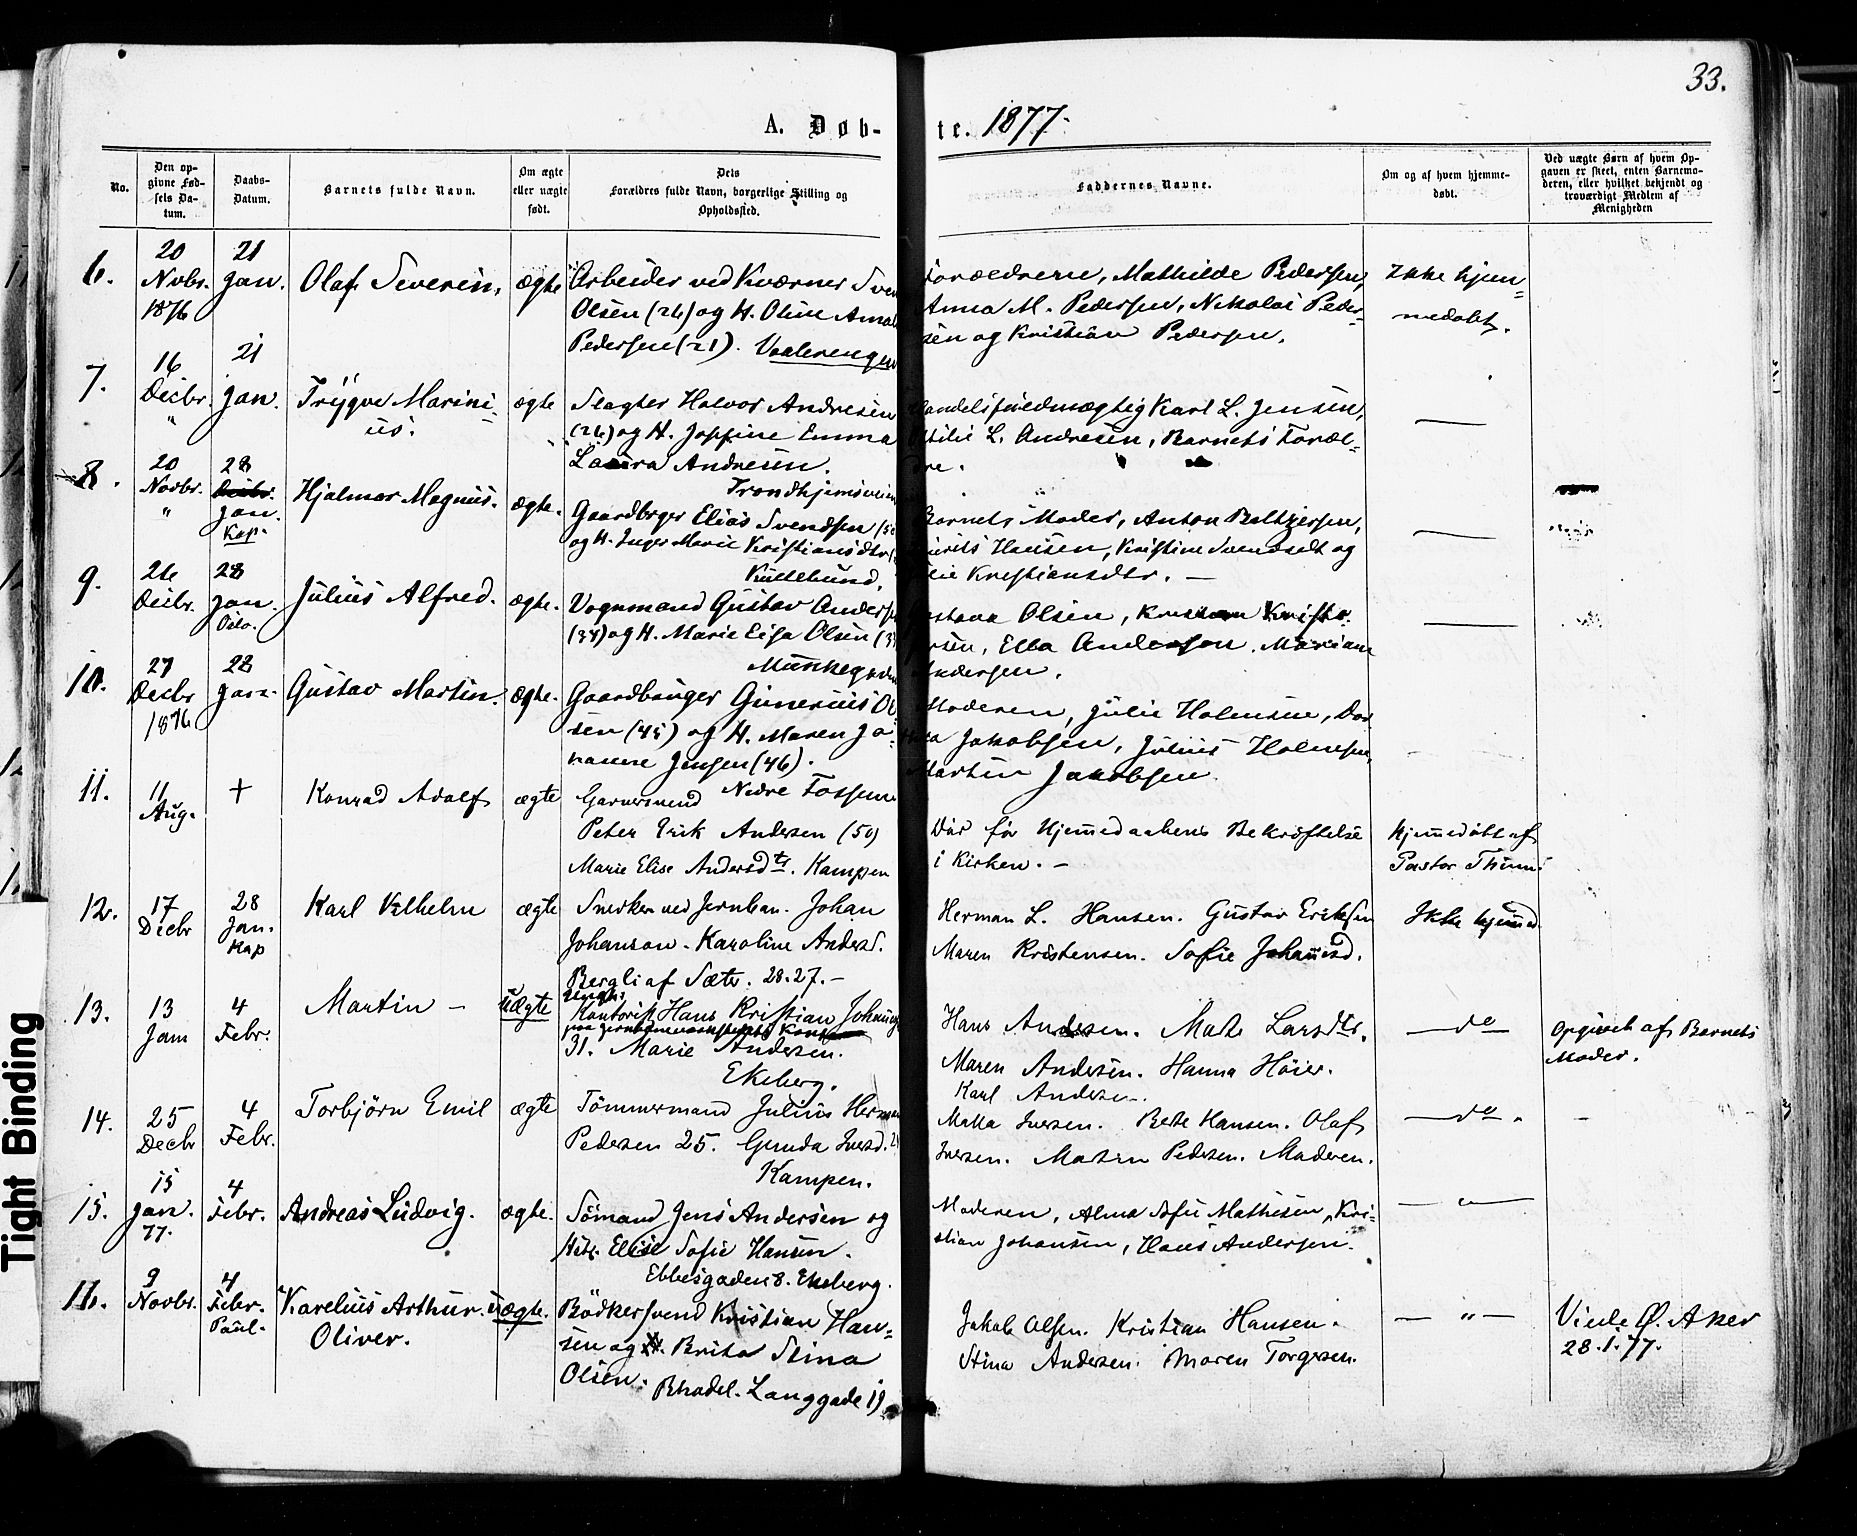 33.
A. Døb-
te. 1877.
No.
Den op-
givne Fød-
sels Da-
tum.
Daabs-
Datum.
Barnets fulde Navn.
Om ægte
eller uægte
født.
Dets
Forældres fulde Navn, borgerlige Stilling og
Opholdssted.
Faddernes Navne.
Om og af hvem hjemme-
døbt.
Ved uægte Børn af hvem Op-
gaven er skeet, enten Barnemo-
deren, eller hvilket bekjendt og
troværdigt Medlem af
Menigheden
6.
20
Novbr.
1876
21
Jan.
Olaf Severin,
ægte
Arbeider ved Kværner Sven
Olsen (26) og H. Oline Amal
Pedersen (21). Vaalerengen
Forældrene, Mathilde Pedersen,
Anna M. Pedersen, Nikolai Peder-
sen og Kristian Pedersen.
Ikke hjem-
medøbt.
7.
16
Decbr.
"
21
Jan.
Trÿgve Marini-
us.
ægte
Slagter Halvor Andresen
(26) og H. Josefine Emma
Laura Andresen.
Trondhjemsveien
Handelsfuldmægtig Karl L. Jensen,
Othilie L. Andresen, Barnets Foræl-
dre.
8.
20
Novbr.
"
28
Jan.
Kap.
Hjalmar Magnus.
ægte.
Gaardbrger Elias Svendsen
og H. Inger Marie Kristiansdtr
Kuttelund.
Barnets Moder, Anton Baltzersen,
Hansen, Kristine Svendsdt og
Kristiansdtr. —
9.
26
Decbr.
28
Jan.
Oslo.
Julius Alfred.
ægte.
Vognmand Gustav Anders
(34) og H. Marie Lisa Olsen
Munkegaden
Gustava Olsen, Kristian Kristo
Ella Anderson, Mariane
Andersen.
10.
27
Decbr
1876
28
Jan.
Gustav Martin.
ægte.
Gaardbruger Gunerius Ol
sen (45) og H. Maren Jo-
hanne Jensen (46).
Nedre Fossum
Moderen, Julie Holmsen, Dor
thea Jakobsen, Julius Holmsen,
Martin Jakobsen
11.
11
Aug.
+
Konrad Adolf
ægte
Garversvend
Peter Erik Andersen (50)
Marie Elise Andersdtr. Kampen
Død før Hjemmedaabens Bekræftelse
i Kirken. —
hjemmedøbt af
Pastor Thun
12.
17
Decbr
28
Jan.
Kap
Karl Vilhelm
ægte
Snedker ved Jernban. Johan
Johanson. Karoline Andersd.
Bergli af Sæter. 28.27. —
Herman L. Hansen. Gustav Eriksen
Maren Kristensen. Sofie Johannesd.
Ikke hjemmed.
13.
13
Jan
4
Febr.
Martin —
uægte
Ungk.
Kontorist Hans Kristian Johnsen
31. Marie Andersen.
Ekeberg.
Hans Andersen. Mate Larsdtr.
Maren Andersen. Hanna Höier.
Karl Andersen.
— do —
Opgivet af Barnets
Moder.
14.
25
Decbr
4
Febr.
Torbjörn Emil
ægte
Tömmermand Julius Herman
Pedersen 25. Gunda Iversd.
Kampen.
Malla Iversen. Berte Hansen. Olaf
Iversen. Martin Pedersen. Moderen.
— do.
15.
15
Jan.
77.
4
Febr.
Andreas Ludvig.
ægte.
Sömand Jens Andersen og
Hstr. Elise Sofie Hansen.
Ebbesgaden 8. Ekeberg.
Moderen, Alma Sofie Mathisen, Kri-
stian Johansen, Hans Andersen.
— " —
16.
9
Novbr.
4
Febr.
Paul.
Karelius Arthur
Oliver.
uægte.
Bödkersvend Kristian Han-
sen og Brita Stina
Olsen. Bhadel. Langgade 19
Jakob Olsen. Kristian Hansen.
Stina Andersen. Maren Torgersen.
— " —
Vide Ø. Aker
28.1.77.
Tight Binding